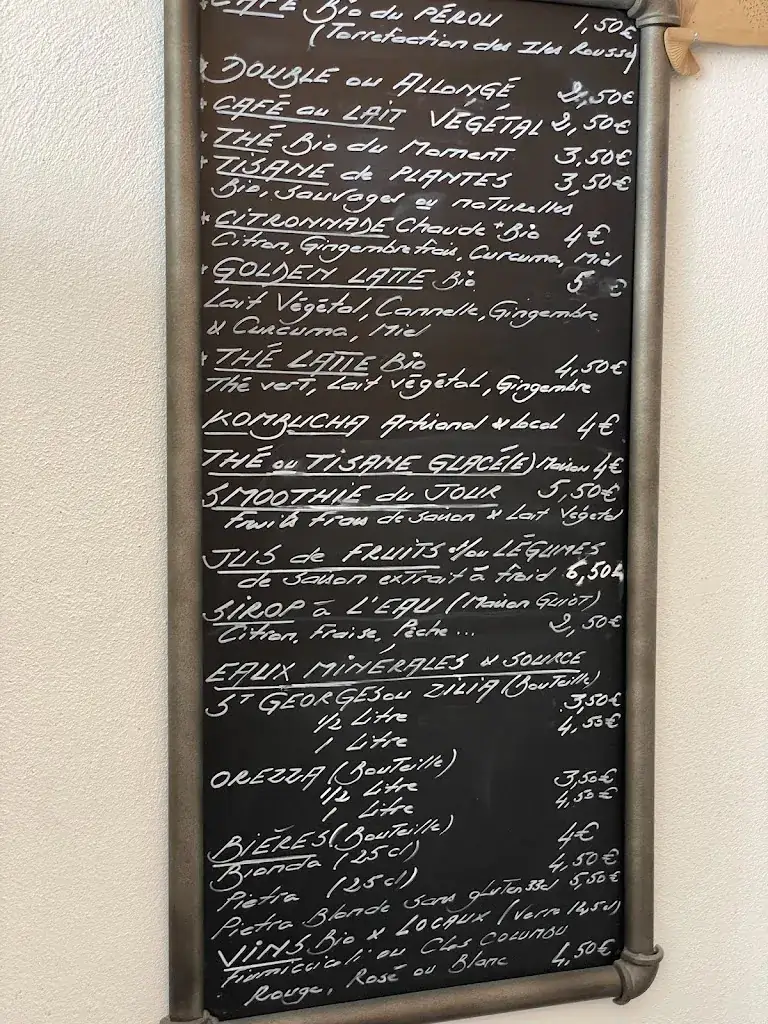 * CAFÉ Bio du PÉROU 1,50€
(Torréfaction des Iles Rousse)
* DOUBLE ou ALLONGÉ 2,50€
* CAFÉ au LAIT VÉGÉTAL 2,50€
* THÉ Bio du Moment 3,50€
* TISANE de PLANTES 3,50€
Bio, sauvages ou naturelles
* CITRONNADE Chaude * Bio 4€
Citron, Gingembre frais, Curcuma, Miel
* GOLDEN LATTE Bio 5 €
Lait Végétal, Cannelle, Gingembre
& Curcuma, Miel
* THÉ LATTE Bio 4,50€
Thé vert, Lait végétal, Gingembre
KOMBUCHA Artisanal & local 4€
THÉ ou TISANE GLACÉ(E) Maison 4€
SMOOTHIE du JOUR 5,50€
Fruits frais de saison & Lait Végétal
JUS de FRUITS &/ou LÉGUMES
de saison extrait à froid 6,50€
SIROP à L'EAU (Maison GUIOT) 2,50€
Citron, Fraise, Pêche...
EAUX MINÉRALES & SOURCE
ST GEORGES ou ZILIA (Bouteille)
1/2 Litre 3,50€
1 Litre 4,50€
OREZZA (Bouteille)
1/2 Litre 3,50€
1 Litre 4,50€
BIÈRES (Bouteille)
Bionda (25cl) 4€
Pietra (25cl) 4,50€
Pietra Blonde sans gluten 33cl 5,50€
VINS Bio & LOCAUX (Verre 12,5cl)
ou Clos COLUMBU
Rouge, Rosé ou Blanc 4,50€